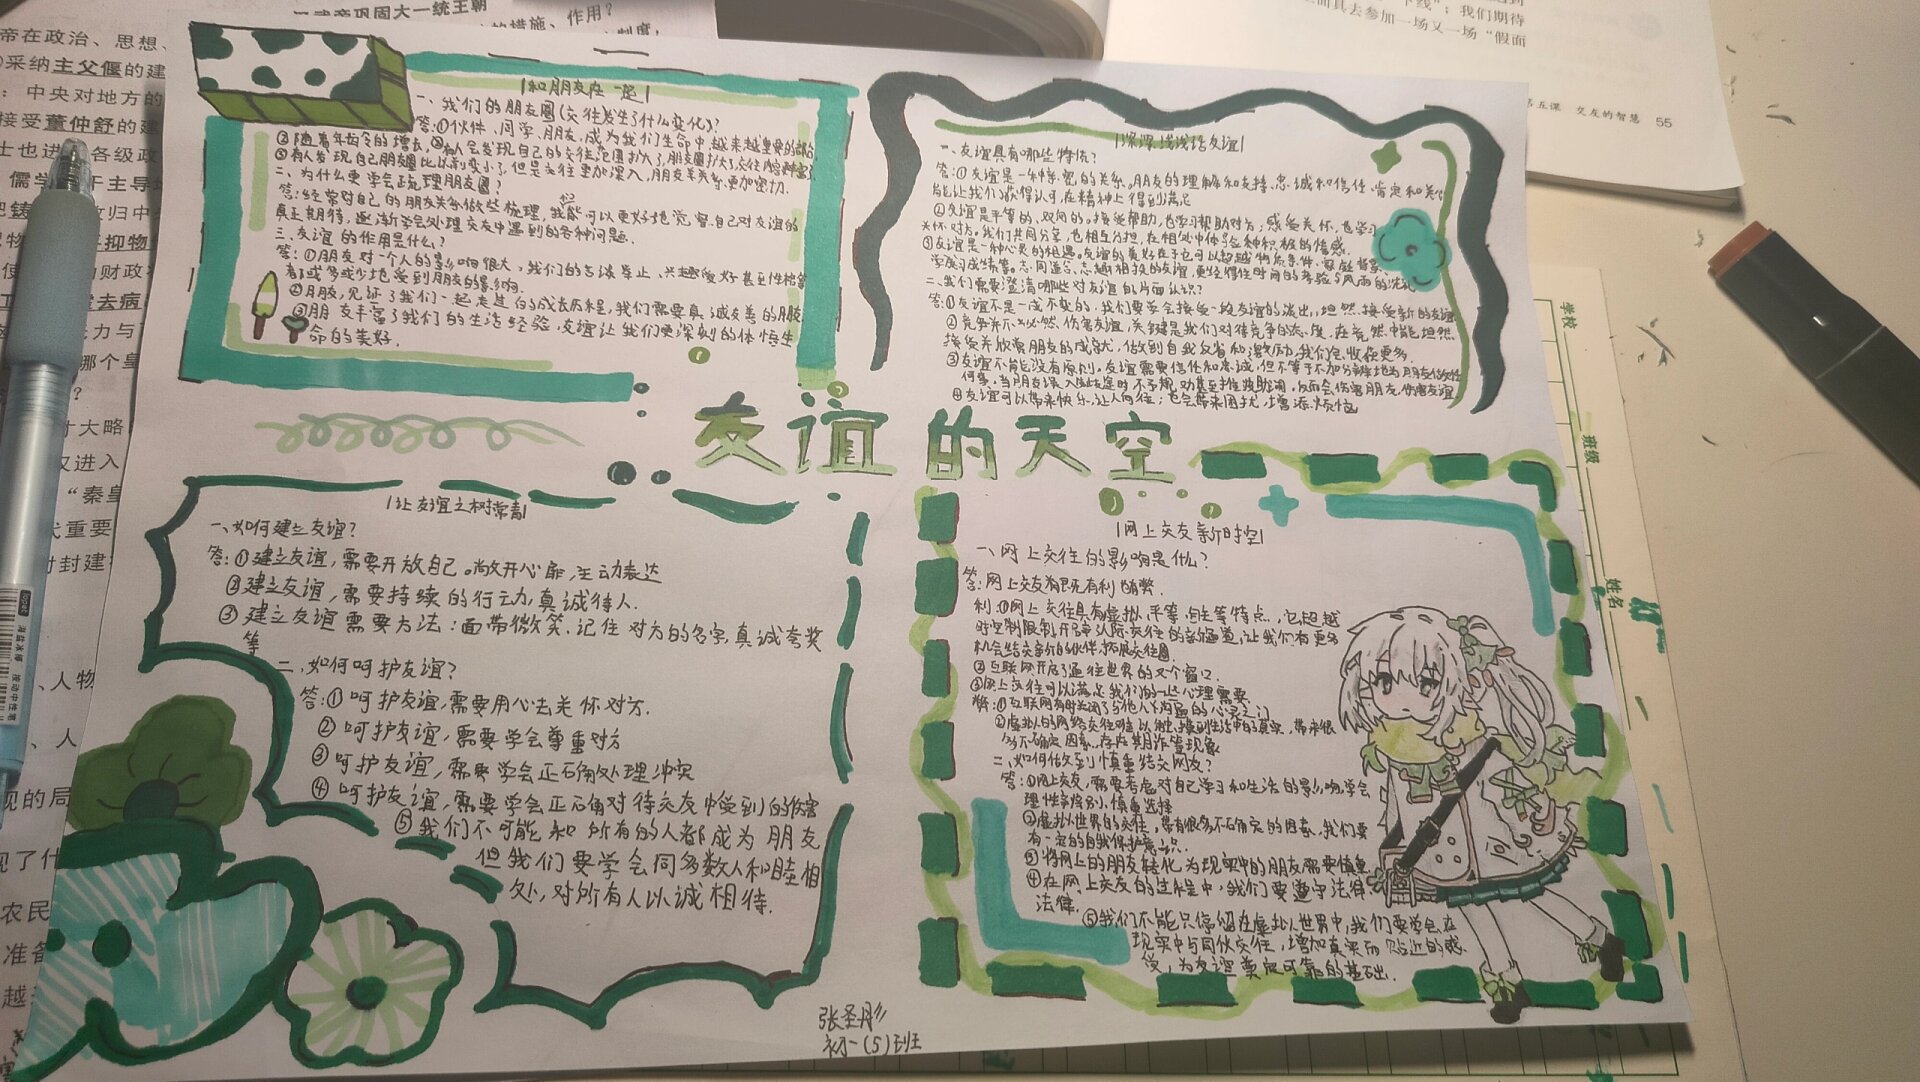 和朋友在一起
一、我们的朋友圈(交往发生了什么变化)?
答:①伙伴、同学、朋友,成为我们生命中越来越重要的部分
②随着年龄的增长,有人会发现自己的交往范围扩大了,朋友圈扩大了,交往内容
③有人发现自己朋友圈比以前变小了,但是交往更加深入,朋友关系更加密切.
二、为什么要学会疏理朋友圈?
答:经常对自己的朋友关系做些梳理,我们可以更好地觉察自己对友谊的
真正期待,逐渐学会处理交友中遇到的各种问题.
三、友谊的作用是什么?
答:①朋友对一个人的影响很大,我们的言谈举止,兴趣爱好甚至性格等
都或多或少地受到朋友的影响.
②朋友,见证了我们一起走过的成长历程,我们需要真诚友善的朋友
③朋友丰富了我们的生活经验,友谊让我们更深刻的体悟生
命的美好.
深深浅浅话友谊
一、友谊具有哪些特质?
答:①友谊是一种亲密的关系。朋友的理解和支持、忠诚和信任、肯定和关心
能让我们获得认可,在精神上得到满足
②友谊是平等的、双向的。接受帮助,也学习帮助对方,感受关怀,也学习
关怀对方。我们共同分享,也相互分担,在相处中体验各种积极的情感.
③友谊是一种心灵的相遇。友谊的美好在于它可以超越物质条件、家庭背景、
学习成绩等。志同道合、志趣相投的友谊,更经得住时间的考验与风雨的洗礼
二、我们需要澄清哪些对友谊的片面认识?
答:①友谊不是一成不变的,我们要学会接受一段友谊的淡出,坦然接受新的友谊
②竞争并不必然伤害友谊,关键是我们对待竞争的态度,在竞争中能坦然
接受并欣赏朋友的成就,做到自我反省和激励,我们会收获更多.
③友谊不能没有原则。友谊需要信任和忠诚,但不等于不加分辨地为朋友做任
何事,当朋友误入歧途时,不予规劝甚至推波助澜,反而会伤害朋友,伤害友谊
④友谊可以带来快乐,让人向往;也会带来困扰,增添烦恼
友谊的天空
让友谊之树常青
一、如何建立友谊?
答:①建立友谊,需要开放自己。敞开心扉,主动表达
②建立友谊,需要持续的行动,真诚待人.
③建立友谊需要方法:面带微笑、记住对方的名字、真诚夸奖
等
二、如何呵护友谊?
答:①呵护友谊,需要用心去关怀对方.
②呵护友谊,需要学会尊重对方
③呵护友谊,需要学会正确处理冲突
④呵护友谊,需要学会正确对待交友中受到的伤害
⑤我们不可能和所有的人都成为朋友
但我们要学会同多数人和睦相
处,对所有人以诚相待.
网上交友新时空
一、网上交往的影响是什么?
答:网上交友有既有利也有弊.
利:①网上交往具有虚拟、平等、自主等特点,它超越
时空制限制开启人际交往的新通道,让我们有更多
机会结交新的伙伴,拓展交往圈.
②互联网开启了通往世界的又个窗口.
③网上交往可以满足我们的一些心理需要
弊:①互联网有时关闭了与他人沟通的心灵之门
②虚拟的网络交往难以触摸到生活中的真实,带来很
多不确定因素,存在欺诈等现象
二、如何做到慎重结交网友?
答:①网上交友,需要考虑对自己学习和生活的影响,学会
理性辨别、慎重选择
②虚拟世界的交往,带有很多不确定的因素,我们要
有一定的自我保护意识.
③将网上的朋友转化为现实中的朋友需要慎重
④在网上交友的过程中,我们要遵守法律
法律.
⑤我们不能只停留在虚拟世界中,我们要学会在
现实中与同伙交往,增加真实而贴近的感
受,为友谊奠定可靠的基础.
张圣彤
初一(5)班
学校
班级
姓名
第五课 交友的智慧 55
下线”;我们期待
面具去参加一场又一场“假面
巩固大一统王朝
帝在政治、思想、
采纳主父偃的建
中央对地方的
接受董仲舒的建